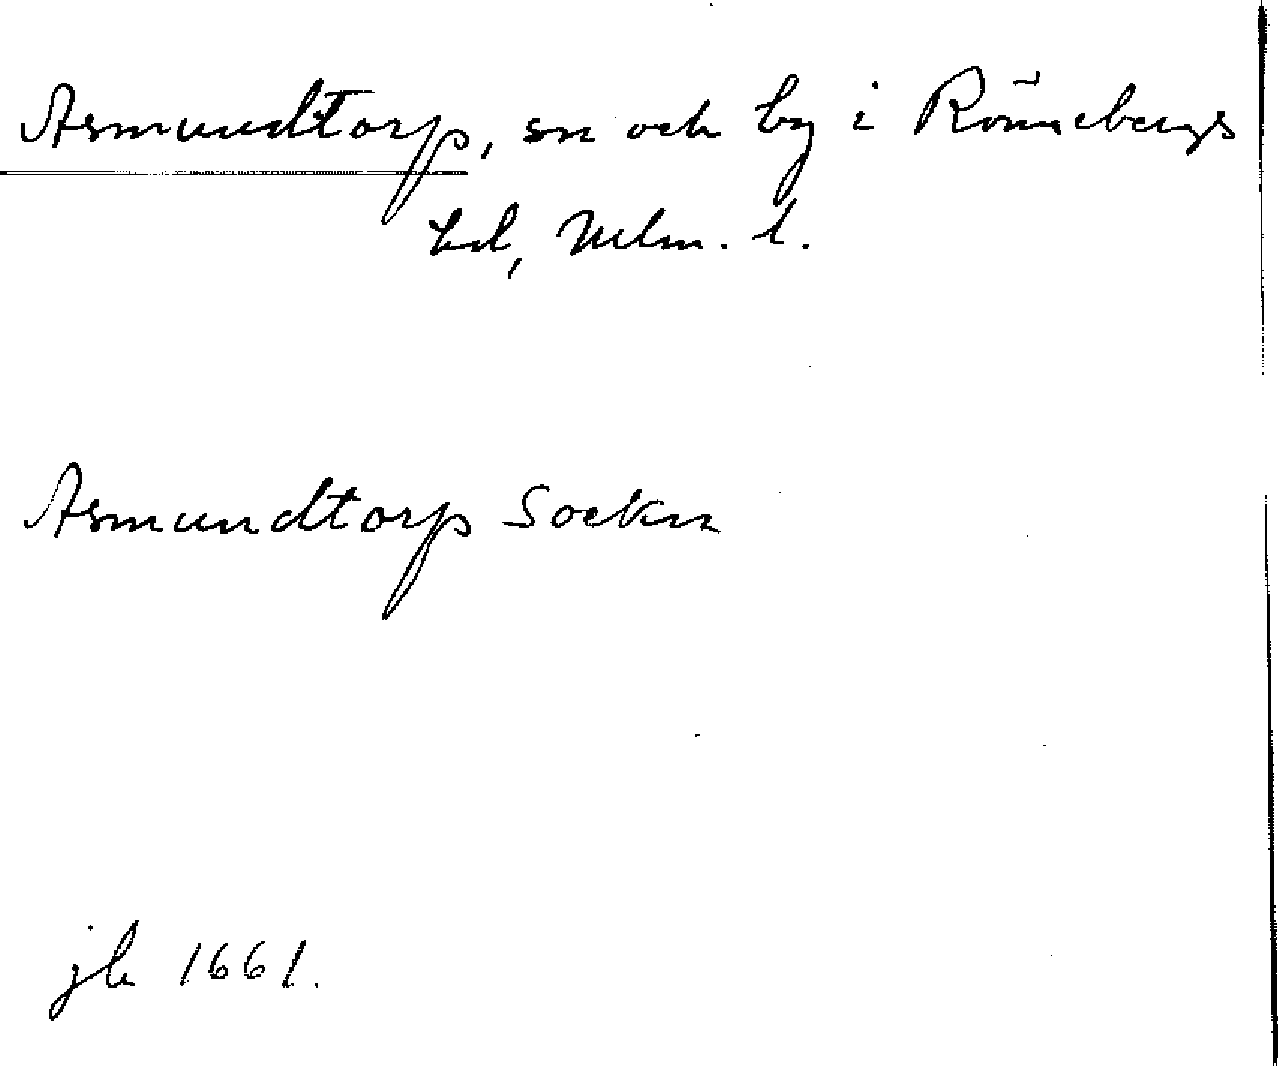 Asmundtorp, sn och by i Rönnebergs
hd, Mlm. l.
Asmundtorp Socken
jb 1661.